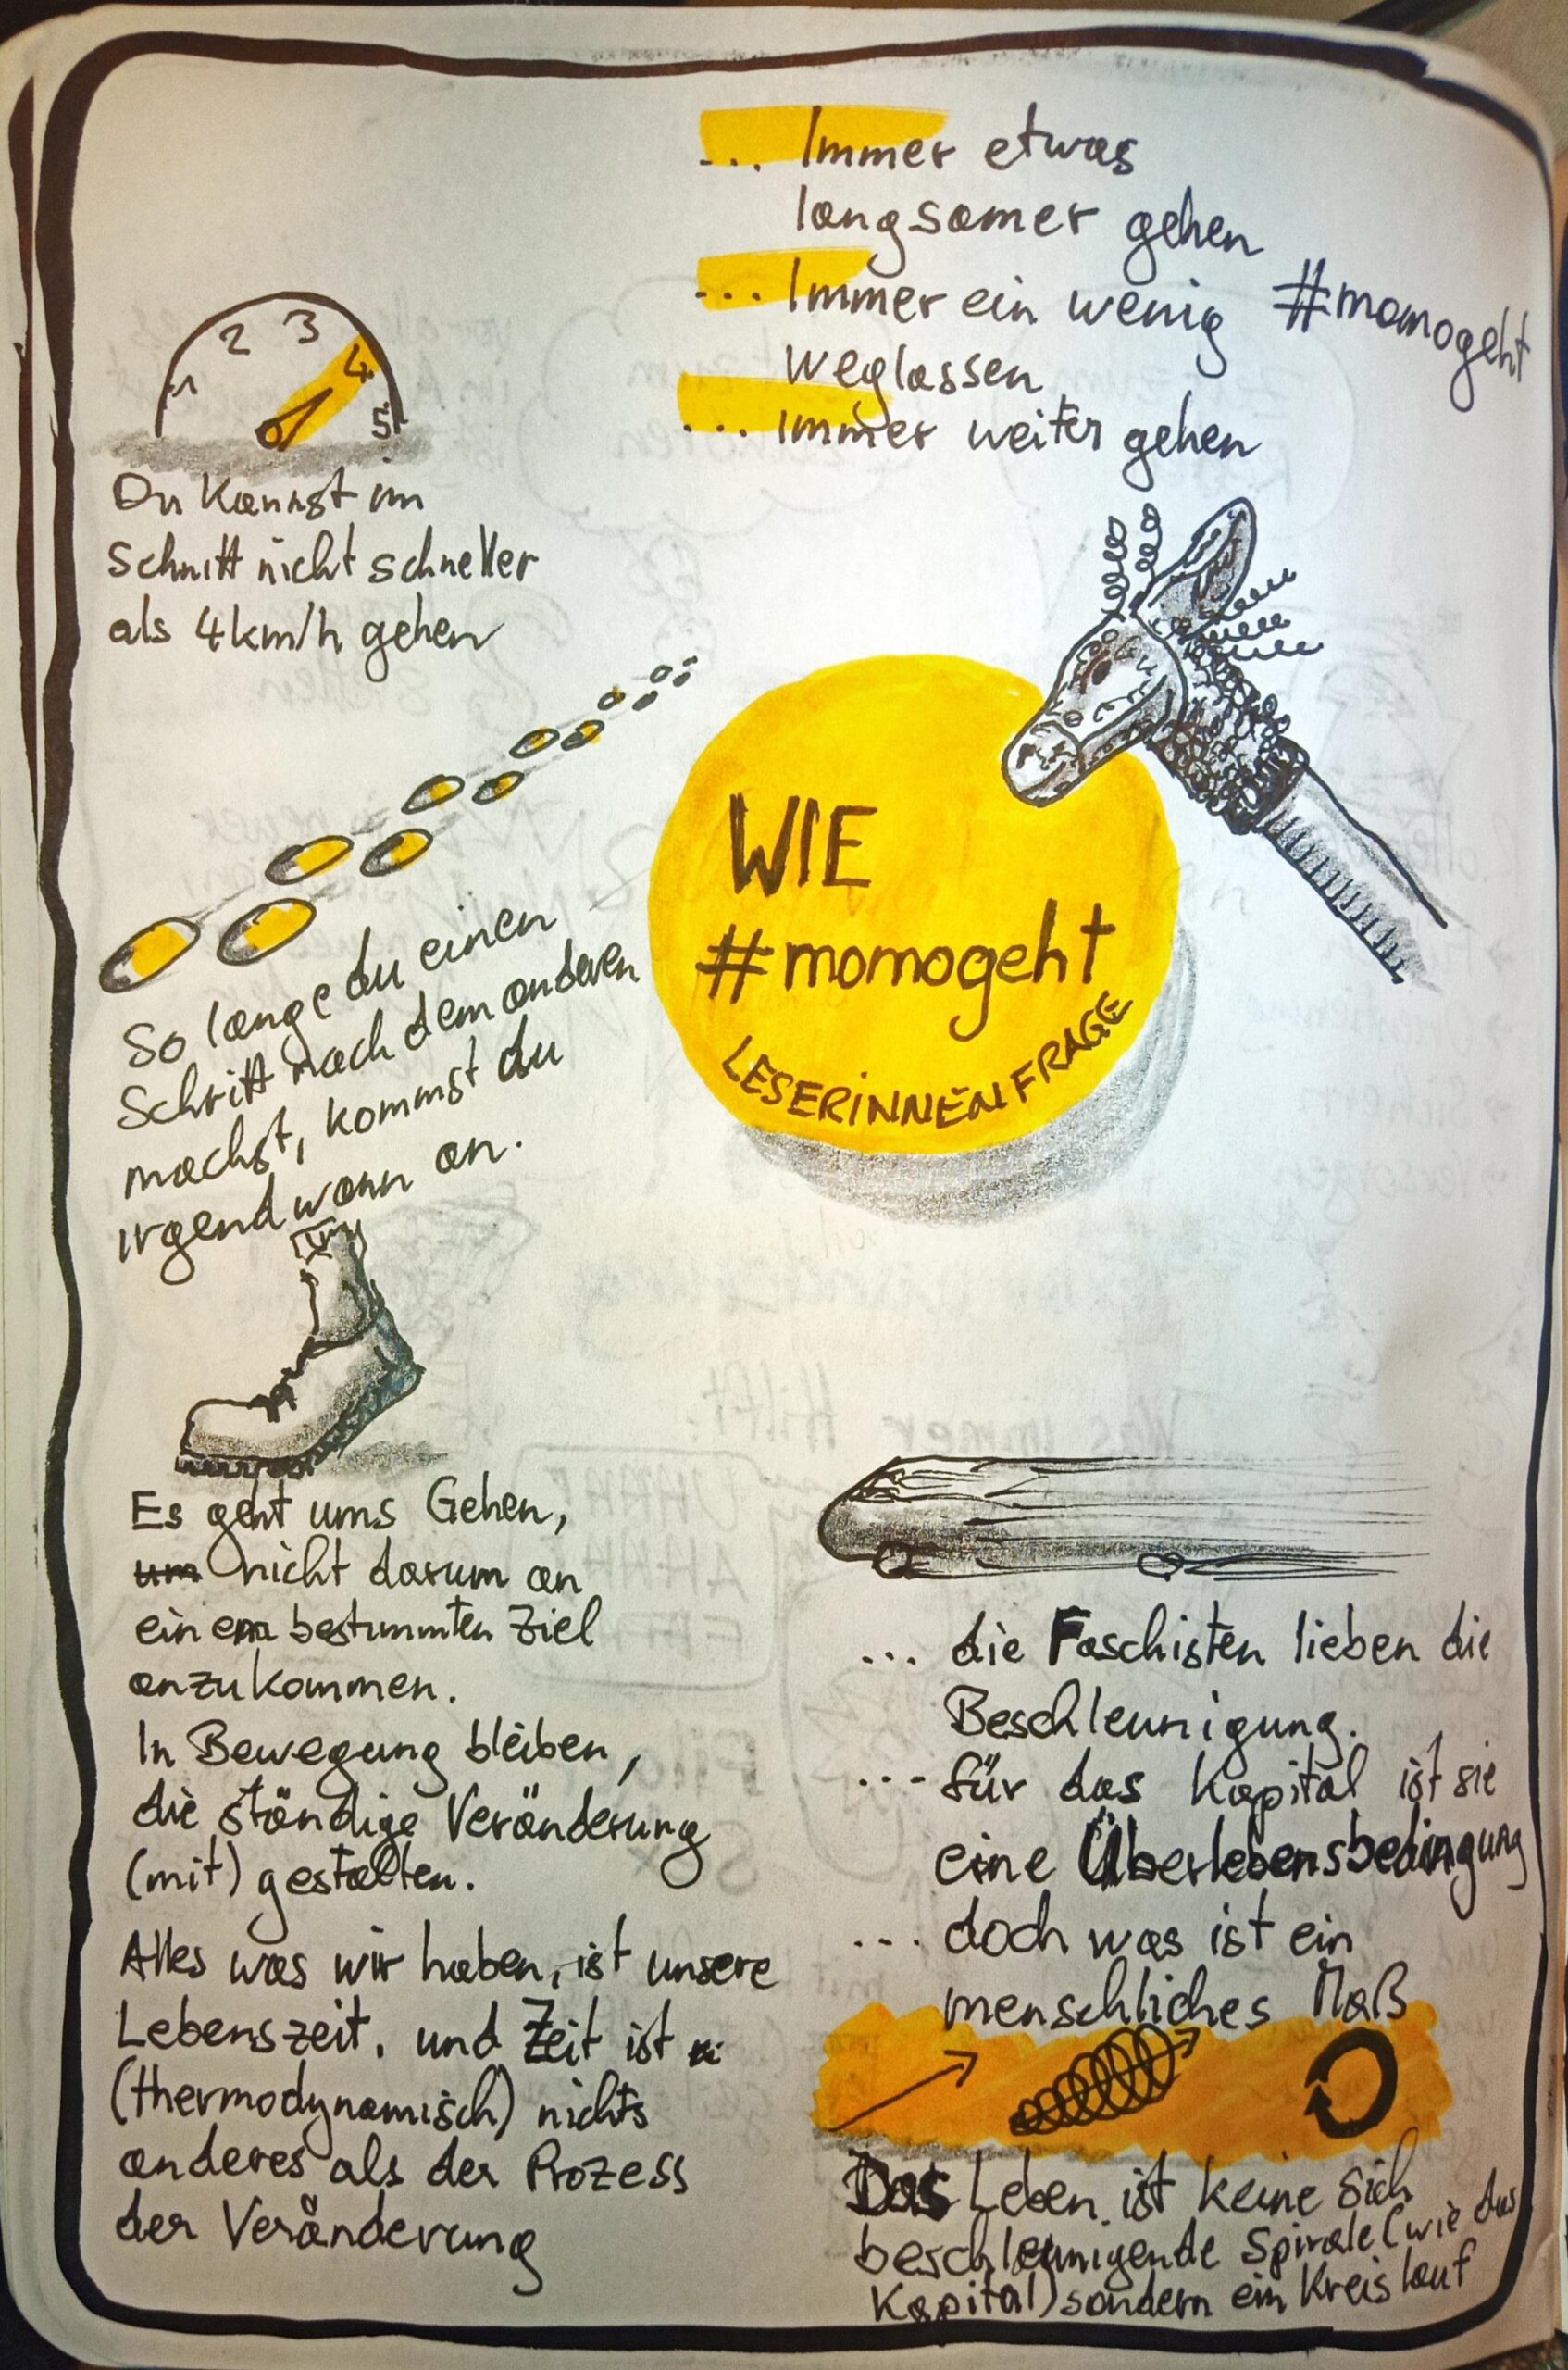 ... Immer etwas
langsamer gehen
... Immer ein wenig
weglassen
... immer weiter gehen
#momogeht
1 2 3 4 5
Du kannst im
Schnitt nicht schneller
als 4km/h gehen
WIE
#momogeht
LESERINNENFRAGE
So lange du einen
Schritt nach dem anderen
machst, kommst du
irgendwann an.
Es geht ums Gehen,
um nicht darum an
einem bestimmten Ziel
anzukommen.
In Bewegung bleiben,
die ständige Veränderung
(mit) gestalten.
Alles was wir haben, ist unsere
Lebenszeit, und Zeit ist
(thermodynamisch) nichts
anderes als der Prozess
der Veränderung
... die Faschisten lieben die
Beschleunigung.
... für das Kapital ist sie
eine Überlebensbedingung
... doch was ist ein
menschliches Maß
Das Leben ist keine sich
beschleunigende Spirale (wie das
Kapital) sondern ein Kreislauf